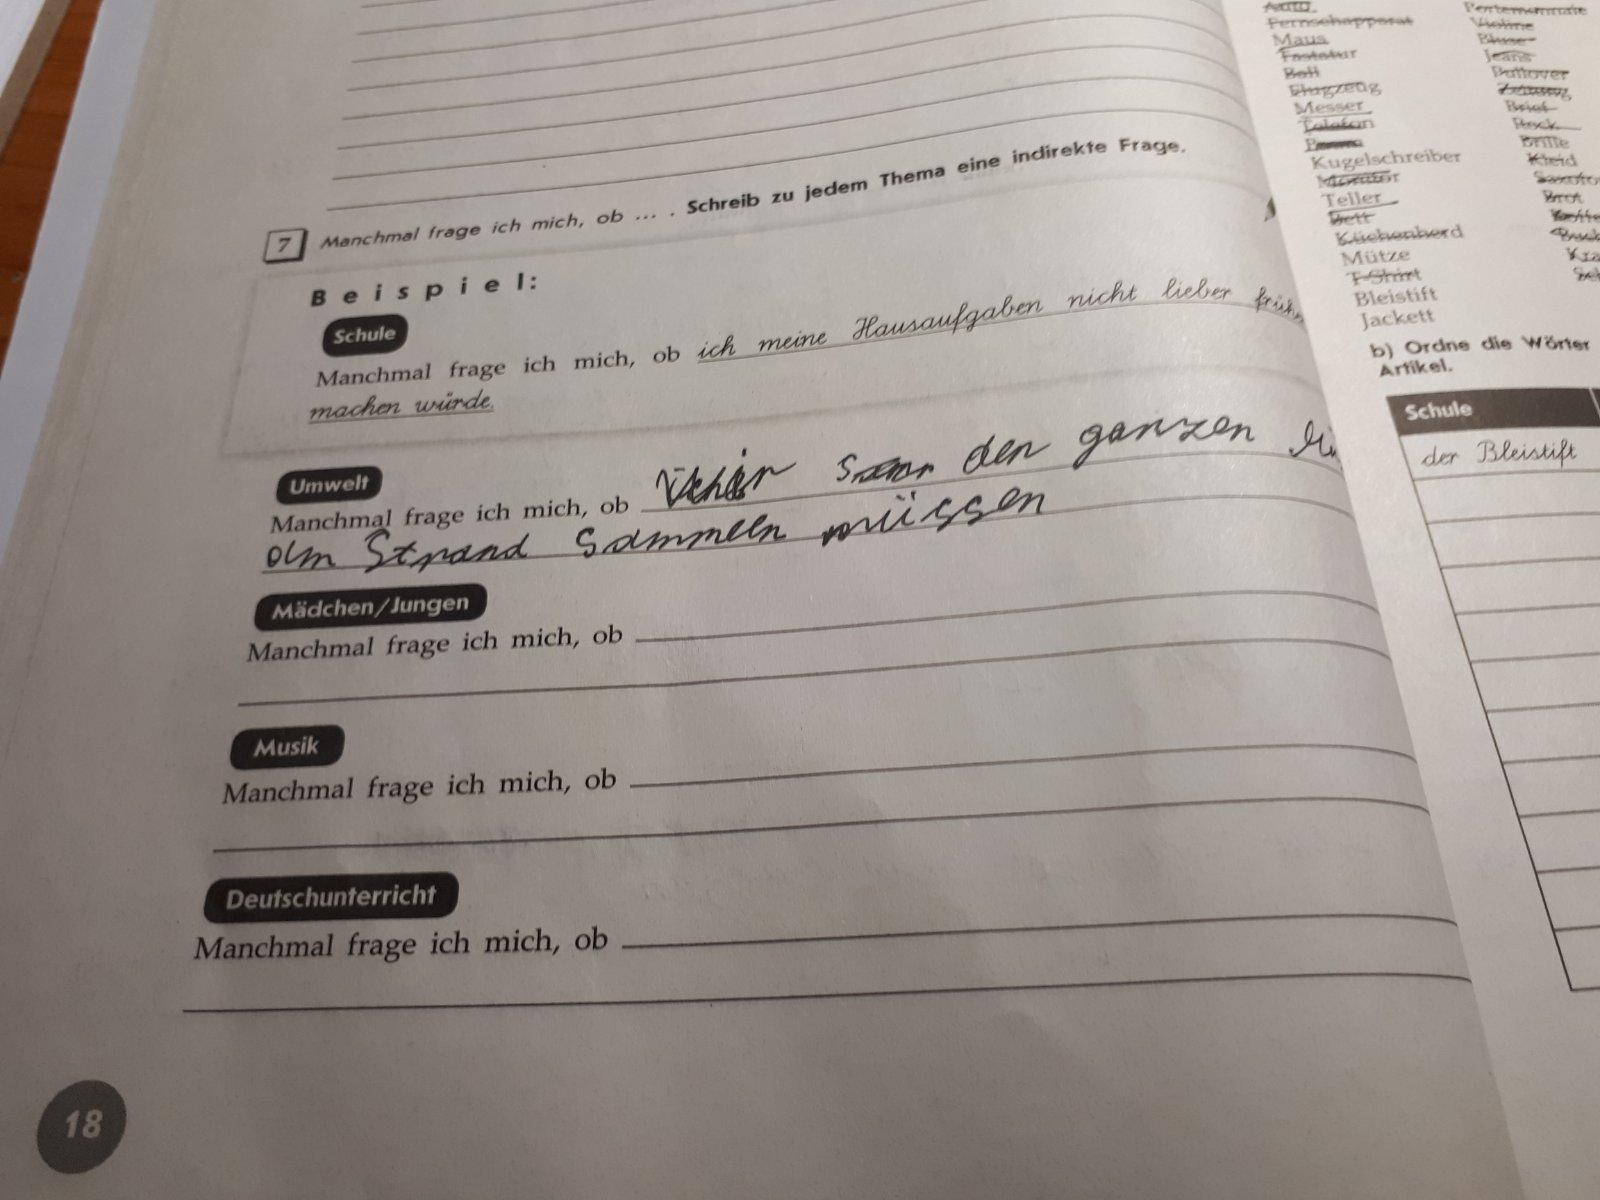 7 Manchmal frage ich mich, ob ... . Schreib zu jedem Thema eine indirekte Frage.
Beispiel:
Schule
Manchmal frage ich mich, ob ich meine Hausaufgaben nicht lieber
machen würde.
Umwelt
Manchmal frage ich mich, ob den ganzen
am Strand sammeln müssen
Mädchen/Jungen
Manchmal frage ich mich, ob
Musik
Manchmal frage ich mich, ob
Deutschunterricht
Manchmal frage ich mich, ob
18
Auto
Fernsehapparat
Maus
Tastatur
Ball
Flugzeug
Messer
Telefon
Kugelschreiber
Monitor
Teller
Bett
Küchenherd
Mütze
T-Shirt
Bleistift
Jackett
Portemonnaie
Violine
Bluse
Jeans
Pullover
Zeitung
Brief
Rock
Brille
Kleid
Brot
b) Ordne die Wörter
Artikel.
Schule
der Bleistift